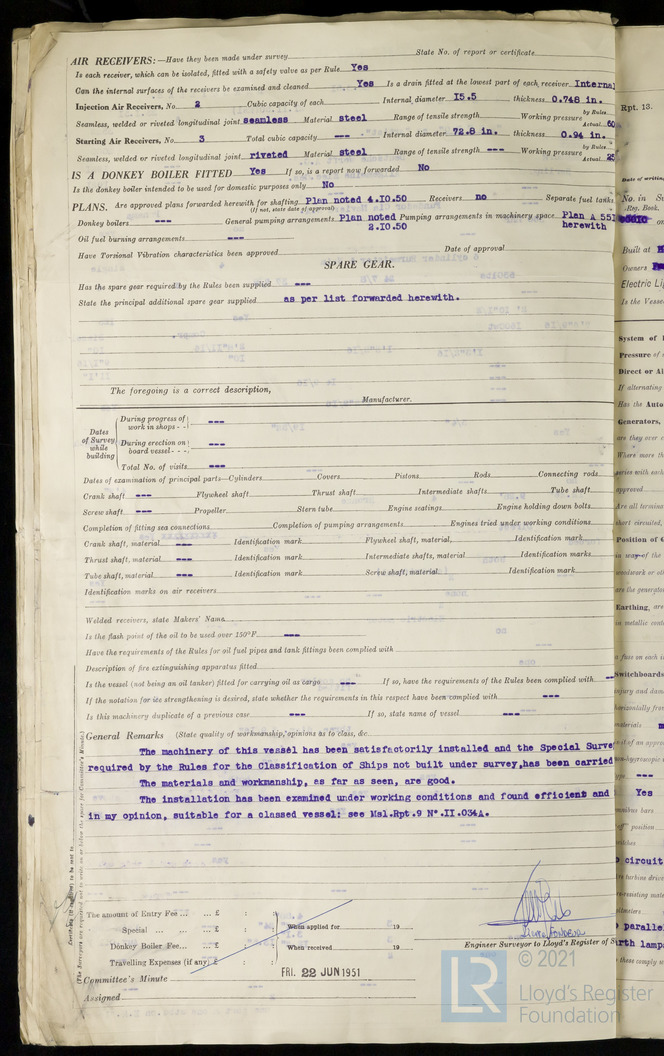 AIR RECEIVERS:—Have they been made under survey State No. of report or certificate
Is each receiver, which can be isolated, fitted with a safety valve as per Rule Yes
Can the internal surfaces of the receivers be examined and cleaned Yes Is a drain fitted at the lowest part of each receiver Internal
Injection Air Receivers, No. 2 Cubic capacity of each Internal diameter 15.5 thickness 0.748 in.
Seamless, welded or riveted longitudinal joint seamless Material steel Range of tensile strength Working pressure by Rules Actual 60
Starting Air Receivers, No. 3 Total cubic capacity --- Internal diameter 72.8 in. thickness 0.94 in.
Seamless, welded or riveted longitudinal joint riveted Material steel Range of tensile strength --- Working pressure by Rules Actual 25
IS A DONKEY BOILER FITTED Yes If so, is a report now forwarded No
Is the donkey boiler intended to be used for domestic purposes only No
PLANS. Are approved plans forwarded herewith for shafting Plan noted 4.10.50 Receivers no Separate fuel tanks
(If not, state date of approval)
Donkey boilers --- General pumping arrangements Plan noted Pumping arrangements in machinery space Plan A 551
2.10.50 herewith
Oil fuel burning arrangements ---
Have Torsional Vibration characteristics been approved Date of approval
SPARE GEAR.
Has the spare gear required by the Rules been supplied ---
State the principal additional spare gear supplied as per list forwarded herewith.
The foregoing is a correct description,
Manufacturer.
Dates of Survey while building
During progress of work in shops - - ---
During erection on board vessel - - - ---
Total No. of visits ---
Dates of examination of principal parts—Cylinders Covers Pistons Rods Connecting rods
Crank shaft --- Flywheel shaft Thrust shaft Intermediate shafts Tube shaft
Screw shaft --- Propeller Stern tube Engine seatings Engine holding down bolts
Completion of fitting sea connections Completion of pumping arrangements Engines tried under working conditions
Crank shaft, material --- Identification mark Flywheel shaft, material Identification mark
Thrust shaft, material --- Identification mark Intermediate shafts, material Identification marks
Tube shaft, material --- Identification mark Screw shaft, material Identification mark
Identification marks on air receivers
Welded receivers, state Makers' Name
Is the flash point of the oil to be used over 150°F. ---
Have the requirements of the Rules for oil fuel pipes and tank fittings been complied with
Description of fire extinguishing apparatus fitted
Is the vessel (not being an oil tanker) fitted for carrying oil as cargo --- If so, have the requirements of the Rules been complied with --
If the notation for ice strengthening is desired, state whether the requirements in this respect have been complied with ---
Is this machinery duplicate of a previous case --- If so, state name of vessel ---
General Remarks (State quality of workmanship, opinions as to class, &c.
The machinery of this vessel has been satisfactorily installed and the Special Surve
required by the Rules for the Classification of Ships not built under survey,has been carried
The materials and workmanship, as far as seen, are good.
The installation has been examined under working conditions and found efficient and
in my opinion, suitable for a classed vessel: see Msl.Rpt.9 N°.II.034A.
The amount of Entry Fee... ... £ : :
Special ... ... £ : : When applied for 19
Donkey Boiler Fee... ... £ : : When received 19
Travelling Expenses (if any) £ : :
Engineer Surveyor to Lloyd's Register of S
Committee's Minute FRI. 22 JUN 1951
Assigned
Rpt. 13.
© 2021
LR
Lloyd's Register
Foundation